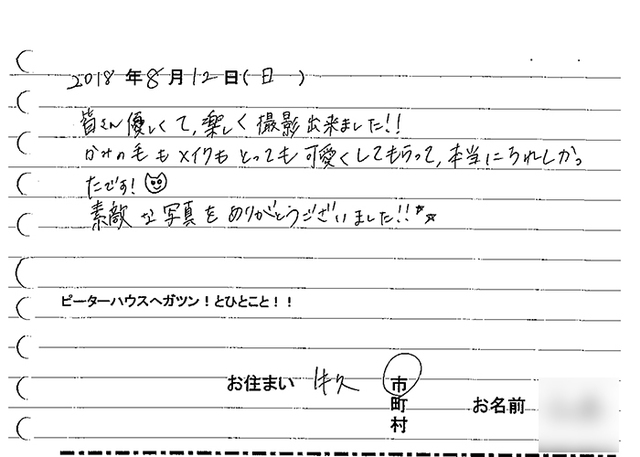 2018 年 8 月 12 日( 日 )
皆さん優しくて、楽しく撮影出来ました!!
かみの毛もメイクもとっても可愛くしてもらって、本当にうれしかっ
たです!
素敵な写真をありがとうございました!!
ピーターハウスへガツン!とひとこと!!
お住まい 牛久 市
町
村
お名前